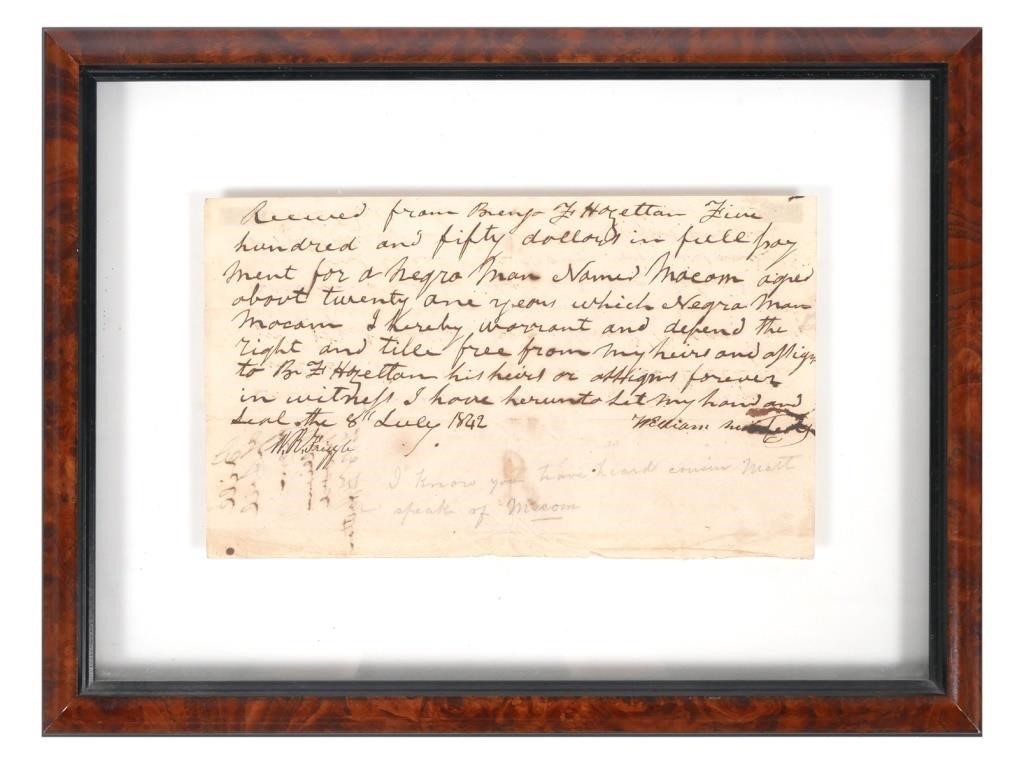 Received from Benj F Hazettan Five
hundred and fifty dollars in full pay
ment for a Negro Man Named Macom aged
about twenty one years which Negro Man
Macam I hereby warrant and defend the
right and title free from my heirs and assigns
to B F Hazettan his heirs or assigns forever
in witness I have herunto Set my hand and
Seal the 8th July 1842 William
W. R.
I know you have heard cousin Matt
speak of Macom